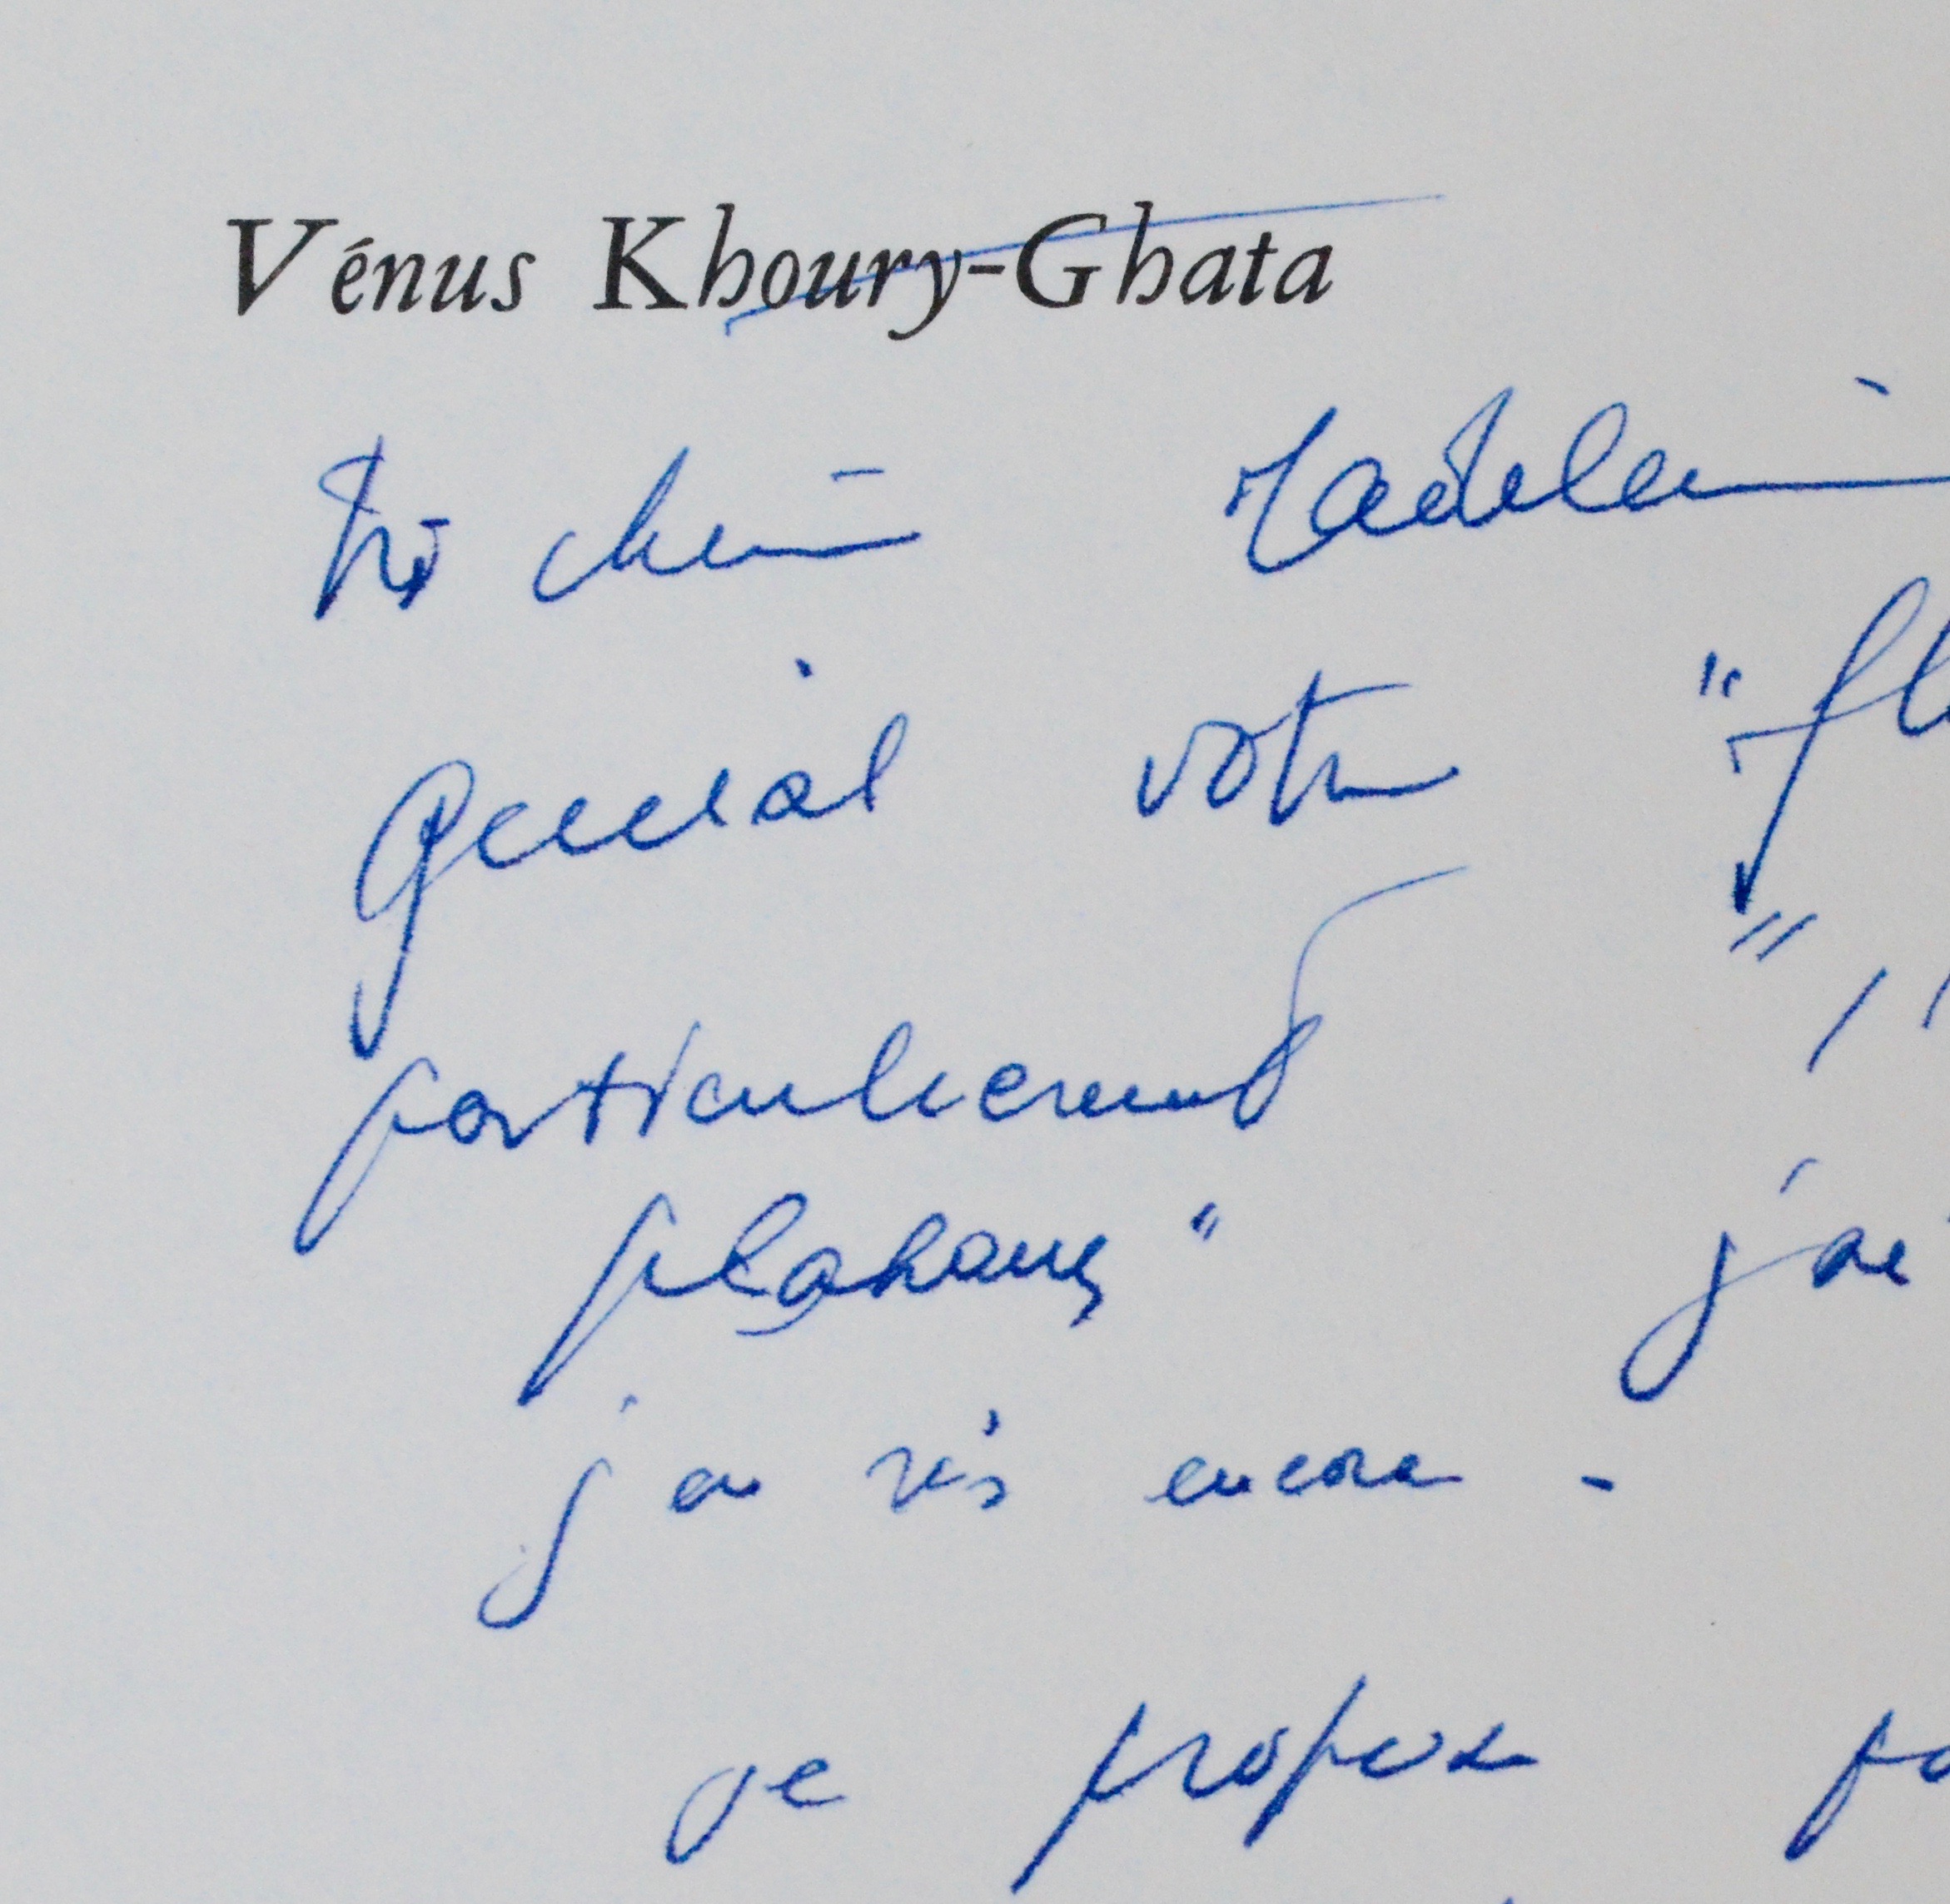 Vénus Khoury-Ghata
Très chère Madeleine
Génial votre "fl
particulièrement "
" j'ai
j'en ris encore -
Je propose po